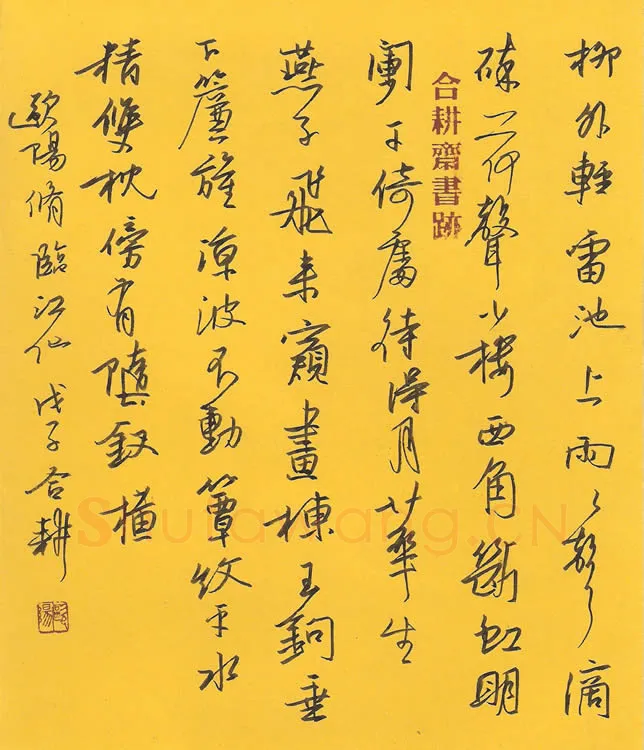 柳外輕雷池上雨〻聲滴
碎荷聲小樓西角斷虹明
闌干倚處待得月華生
燕子飛來窺畫棟玉鉤垂
下簾旌涼波不動簟紋平水
精雙枕傍有墮釵橫
歐陽脩臨江仙 戊子合耕
合耕齋書跡
Shufawang.CN